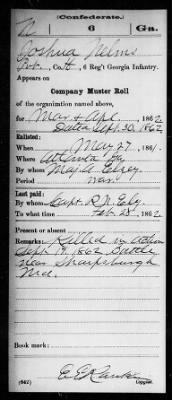 (Confederate.)
N 6 Ga.
Joshua Nelms
Pvt., Co. H, 6 Reg't Georgia Infantry.
Appears on
Company Muster Roll
of the organization named above,
for Mar & Apl, 1862.
Dated Sept. 30, 1862
Enlisted:
When May 27, 1861.
Where Atlanta Ga
By whom Maj. A.
Period war
Last paid:
By whom Capt. R. N. Ely
To what time Feb 28, 1862.
Present or absent
Remarks: Killed in action
Sept 17, 1862 Battle
near Sharpsburgh
Md.
Book mark:
(642)
Copyist.